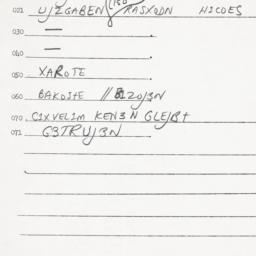 021 UJZGABEN RASXODN HICOES
030 —
040 —
050 XAROTE
060 BAKOSTE // BIZOJ3N
070 C1XVEL1M KEN3N GLEJBT
071 G3TRUJ3N